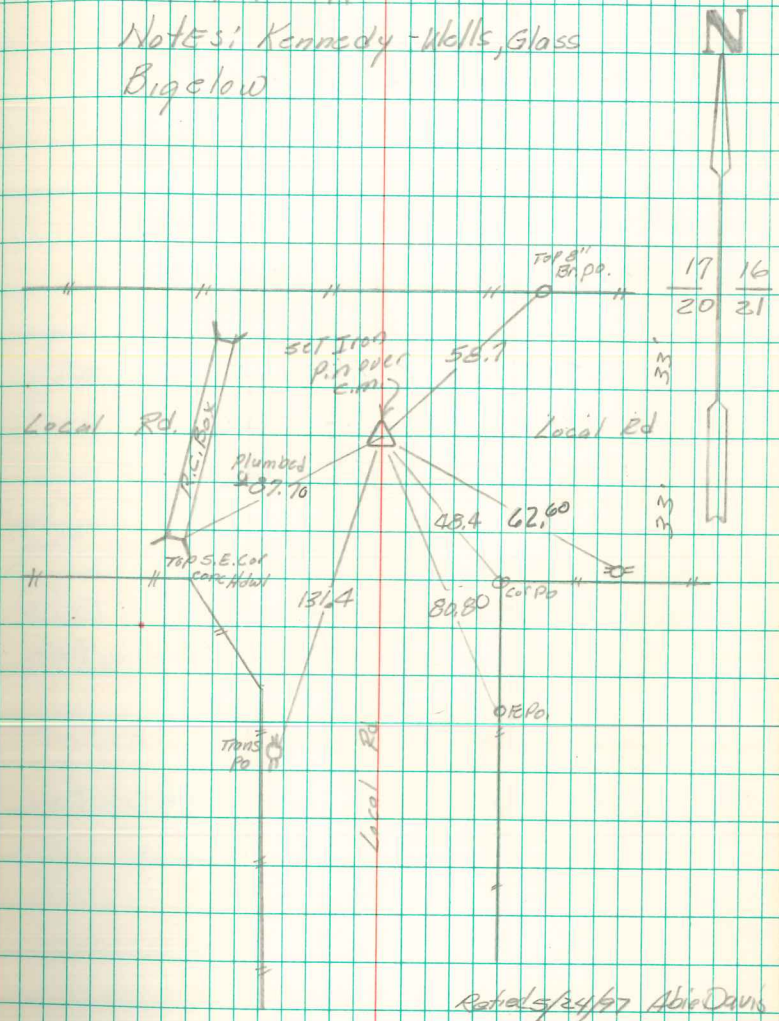 Notes: Kennedy - Wells, Glass
Bigelow
N
Top 8"
Br. po.
17 16
20 21
Set Iron
Pin over
c.m.
58.7
33'
Local Rd.
R.C. Box
Local Rd
Plumbed
87.70
48.4
62.60
33'
Top S.E. Cor
conc Hdwl
131.4
80.80
Cor Po
FE Po.
Trans
Po
Local Rd
Retied 5/24/97 Abie Davis